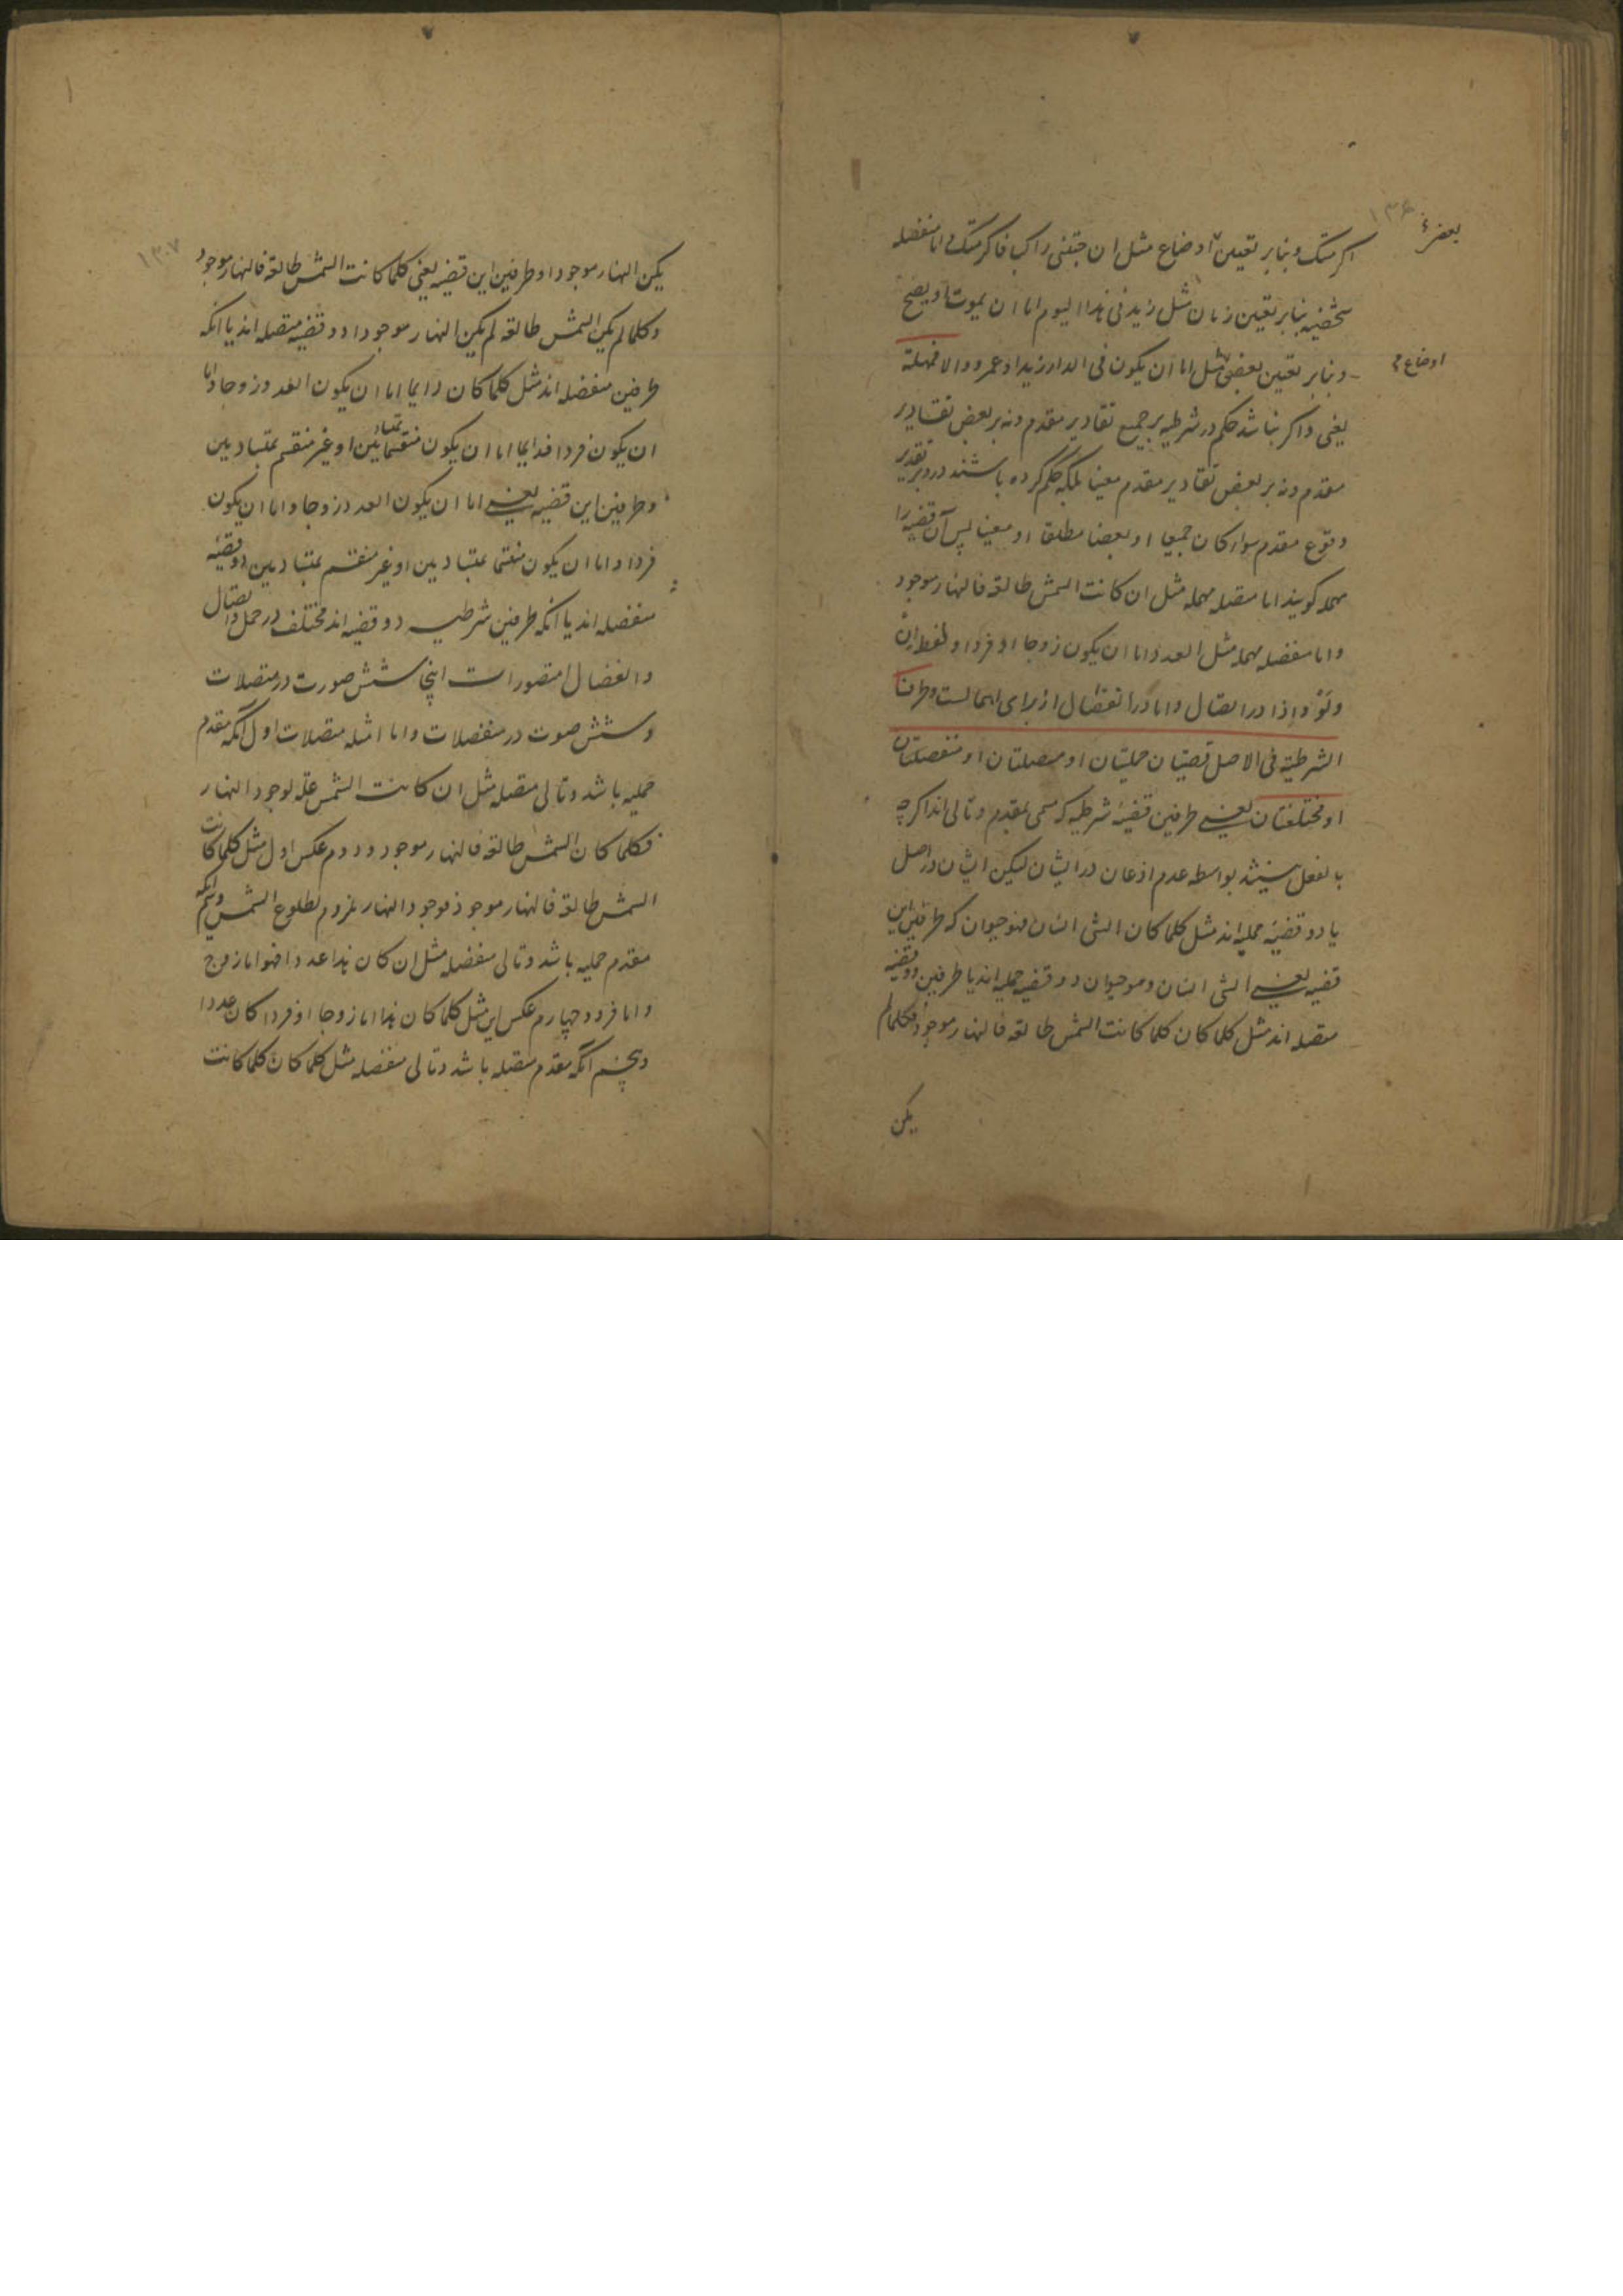 ۱۳۶
بعضی
اکرمتک و بنابر تعین اوضاع مثل ان جئتنی راکبا فاکرمتک و اما منفصله
شخصیه بنابر تعین زمان مثل زید فی هذا الیوم اما ان یموت او یصح
و بنابر تعین بعض مثل اما ان یکون فی الدار زید او عمرو والا فمهملة
اوضاع
یعنی و اگر نباشد حکم در شرطیه بر جمیع تقادیر مقدم و نه بر بعض تقادیر
مقدم و نه بر بعض تقادیر مقدم معینا بلکه حکم کرده باشند در و بر تقدیر
وقوع مقدم سواء کان جمیعا او بعضا مطلقا او معینا پس آن قضیه را
مهمله کویند اما متصله مهمله مثل ان کانت الشمس طالعة فالنهار موجود
و اما منفصله مهمله مثل العدد اما ان یکون زوجا او فردا و لفظ ان
و لو و اذا در اتصال و اما در انفصال از برای اهمالست و طرفا
الشرطیة فی الاصل قضیتان حملیتان او متصلتان او منفصلتان
او مختلفتان یعنی طرفین قضیه شرطیه که مسمی بمقدم و تالی اند اکرچه
بالفعل نیستند بواسطه عدم اذعان در ایشان لیکن ایشان در اصل
یا دو قضیه حملیه اند مثل کلما کان الشی انسان فهو حیوان که طرفین این
قضیه یعنی الشی انسان و هو حیوان دو قضیه حملیه اند یا طرفین دو قضیه
متصله اند مثل کلما کان کلما کانت الشمس طالعة فالنهار موجود فکلما لم
یکن
۱۳۷
یکن النهار موجودا و طرفین این قضیه یعنی کلما کانت الشمس طالعة فالنهار موجود
و کلما لم یکن الشمس طالعة لم یکن النهار موجودا دو قضیه متصله اند یا انکه
طرفین منفصله اند مثل کلما کان دایما اما ان یکون العدد زوجا و اما
ان یکون فردا فدایما اما ان یکون منقسما بمتساویین او غیر منقسم بمتساویین
و طرفین این قضیه یعنی اما ان یکون العدد زوجا و اما ان یکون
فردا و اما ان یکون منقسما بمتساویین او غیر منقسم بمتساویین دو قضیه
منفصله اند یا انکه طرفین شرطیه دو قضیه اند مختلف در حمل و اتصال
و انفصال متصور است اینجا شش صورت در متصلات
و شش صوت در منفصلات و اما امثله متصلات اول انکه مقدم
حملیه باشد و تالی متصله مثل ان کانت الشمس علة لوجود النهار
فکلما کان الشمس طالعة فالنهار موجود و دوم عکس اول مثل کلما کانت
الشمس طالعة فالنهار موجود فوجود النهار ملزوم لطلوع الشمس و سیم انکه
مقدم حملیه باشد و تالی منفصله مثل ان کان هذا عددا فهو اما زوج
و اما فرد و چهارم عکس این مثل کلما کان هذا اما زوجا او فردا کان عددا
و پنجم انکه مقدم متصله باشد و تالی منفصله مثل کلما کان کلما کانت